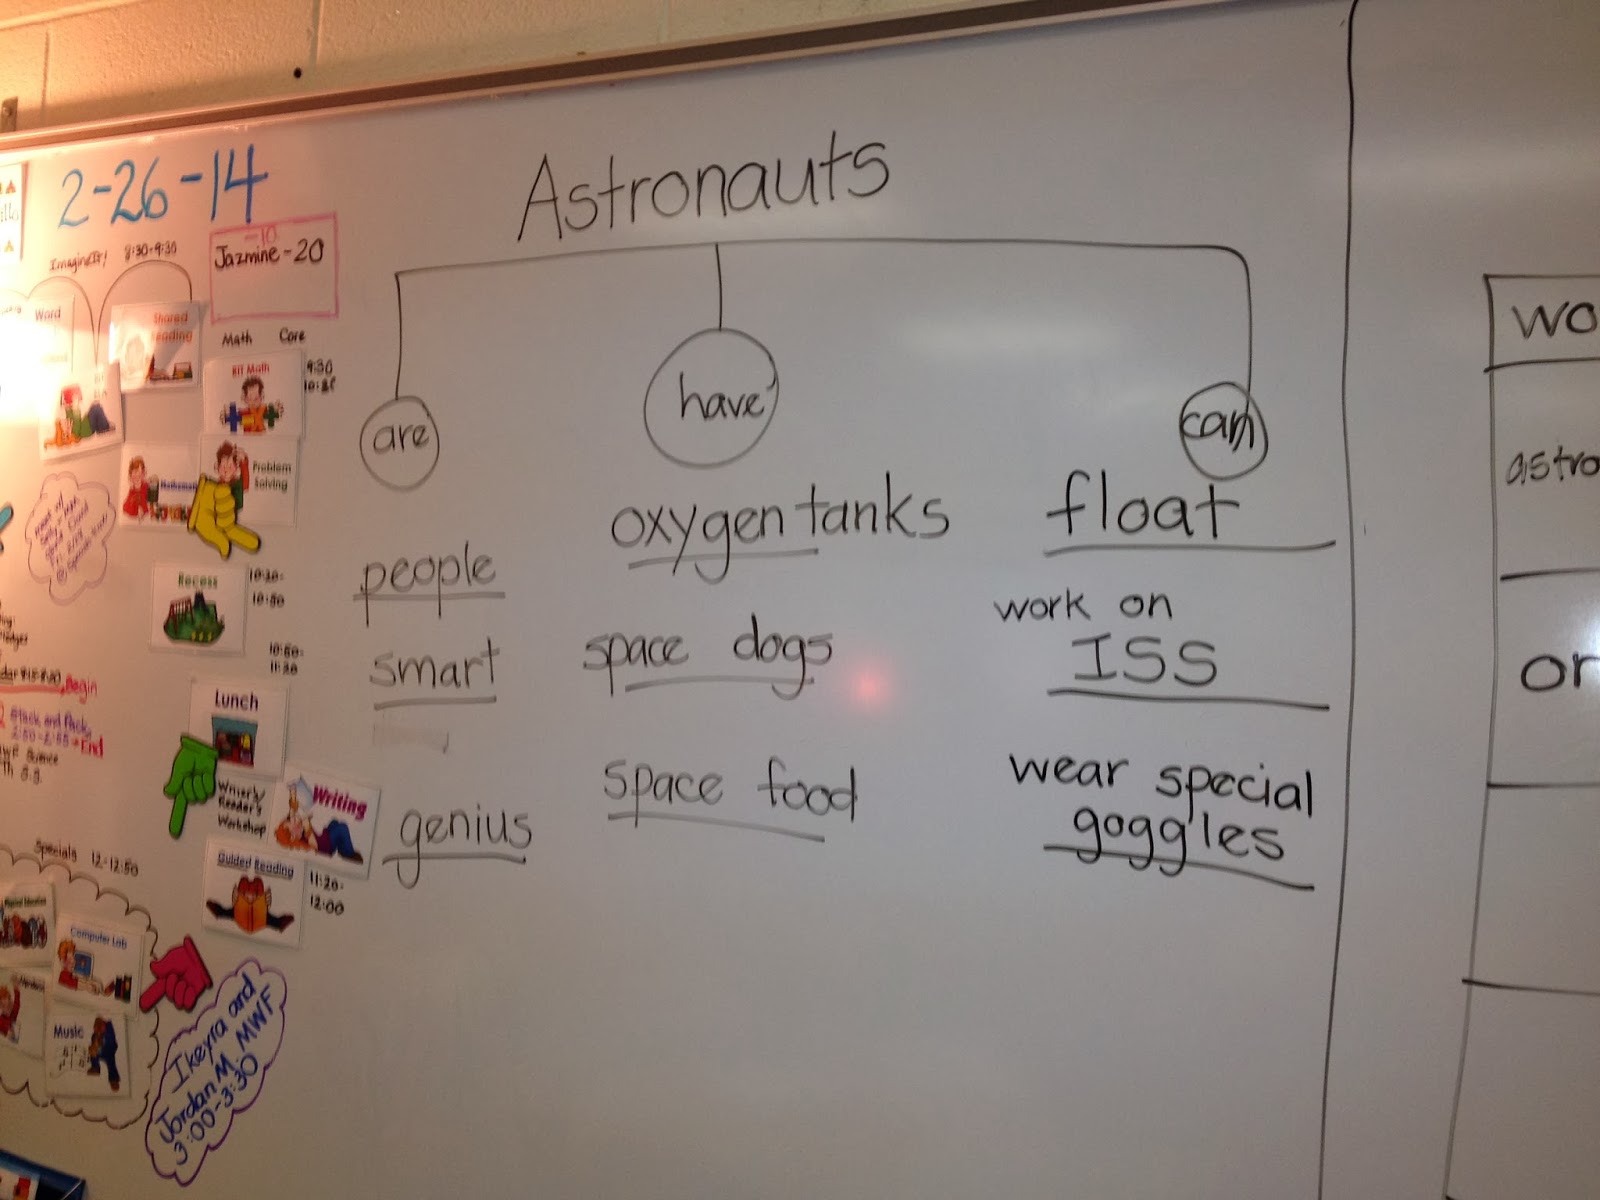 2-26-14
Astronauts
Imagine It! 8:30-9:30
-10
Jazmine-20
Word
Shared
Reading
Math Core
Kit Math
9:30
Problem
Solving
are
have
can
people
smart
genius
oxygen tanks
space dogs
space food
float
work on
ISS
wear special
goggles
Recess
10:30-
10:50
10:50-
11:20
Lunch
Writer's/
Reader's
Workshop
Writing
Guided Reading
11:20-
12:00
Begin
Stack and Pack
End
Specials 12-12:50
Computer Lab
Music
Ikeyra and
Jordan M. MWF
3:00-3:30
wo
astro
or